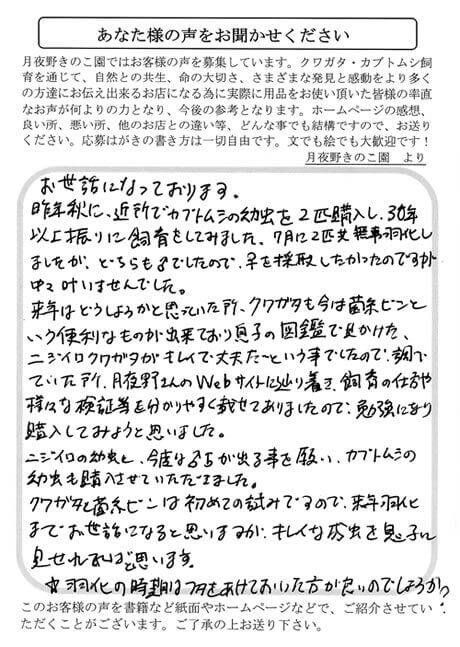 あなた様の声をお聞かせください
月夜野きのこ園ではお客様の声を募集しています。クワガタ・カブトムシ飼
育を通じて、自然との共生、命の大切さ、さまざまな発見と感動をより多く
の方達にお伝え出来るお店になる為に実際に用品をお使い頂いた皆様の率直
なお声が何よりの力となり、今後の参考となります。ホームページの感想、
良い所、悪い所、他のお店との違い等、どんな事でも結構ですので、お送り
ください。応募はがきの書き方は一切自由です。文でも絵でも大歓迎です！
月夜野きのこ園　より
お世話になっております。
昨年秋に、近所でカブトムシの幼虫を2匹購入し、30年
以上振りに飼育をしてみました。7月に2匹共無事羽化し
ましたが、どちらも♂でしたので、卵を採取したかったのですが
中々叶いませんでした。
来年はどうしようかと思っていた所、クワガタも今は菌糸ビンと
いう便利なものが出来ており息子の図鑑で見かけた、
ニジイロクワガタがキレイで丈夫だという事でしたので、調べ
ていた所、月夜野さんのWebサイトに辿り着き、飼育の仕方や
様々な検証等を分かりやすく載せてありましたので、勉強になり
購入してみようと思いました。
ニジイロの幼虫と、今度は♂♀が出る事を願い、カブトムシの
幼虫も購入させていただきました。
クワガタと菌糸ビンは初めての試みですので、来年羽化
までお世話になると思いますが、キレイな成虫を息子に
見せれればと思います。
☆羽化の時期はフタをあけておいた方が良いのでしょうか？
このお客様の声を書籍など紙面やホームページなどで、ご紹介させてい
ただくことがございます。ご了承の上お送り下さい。